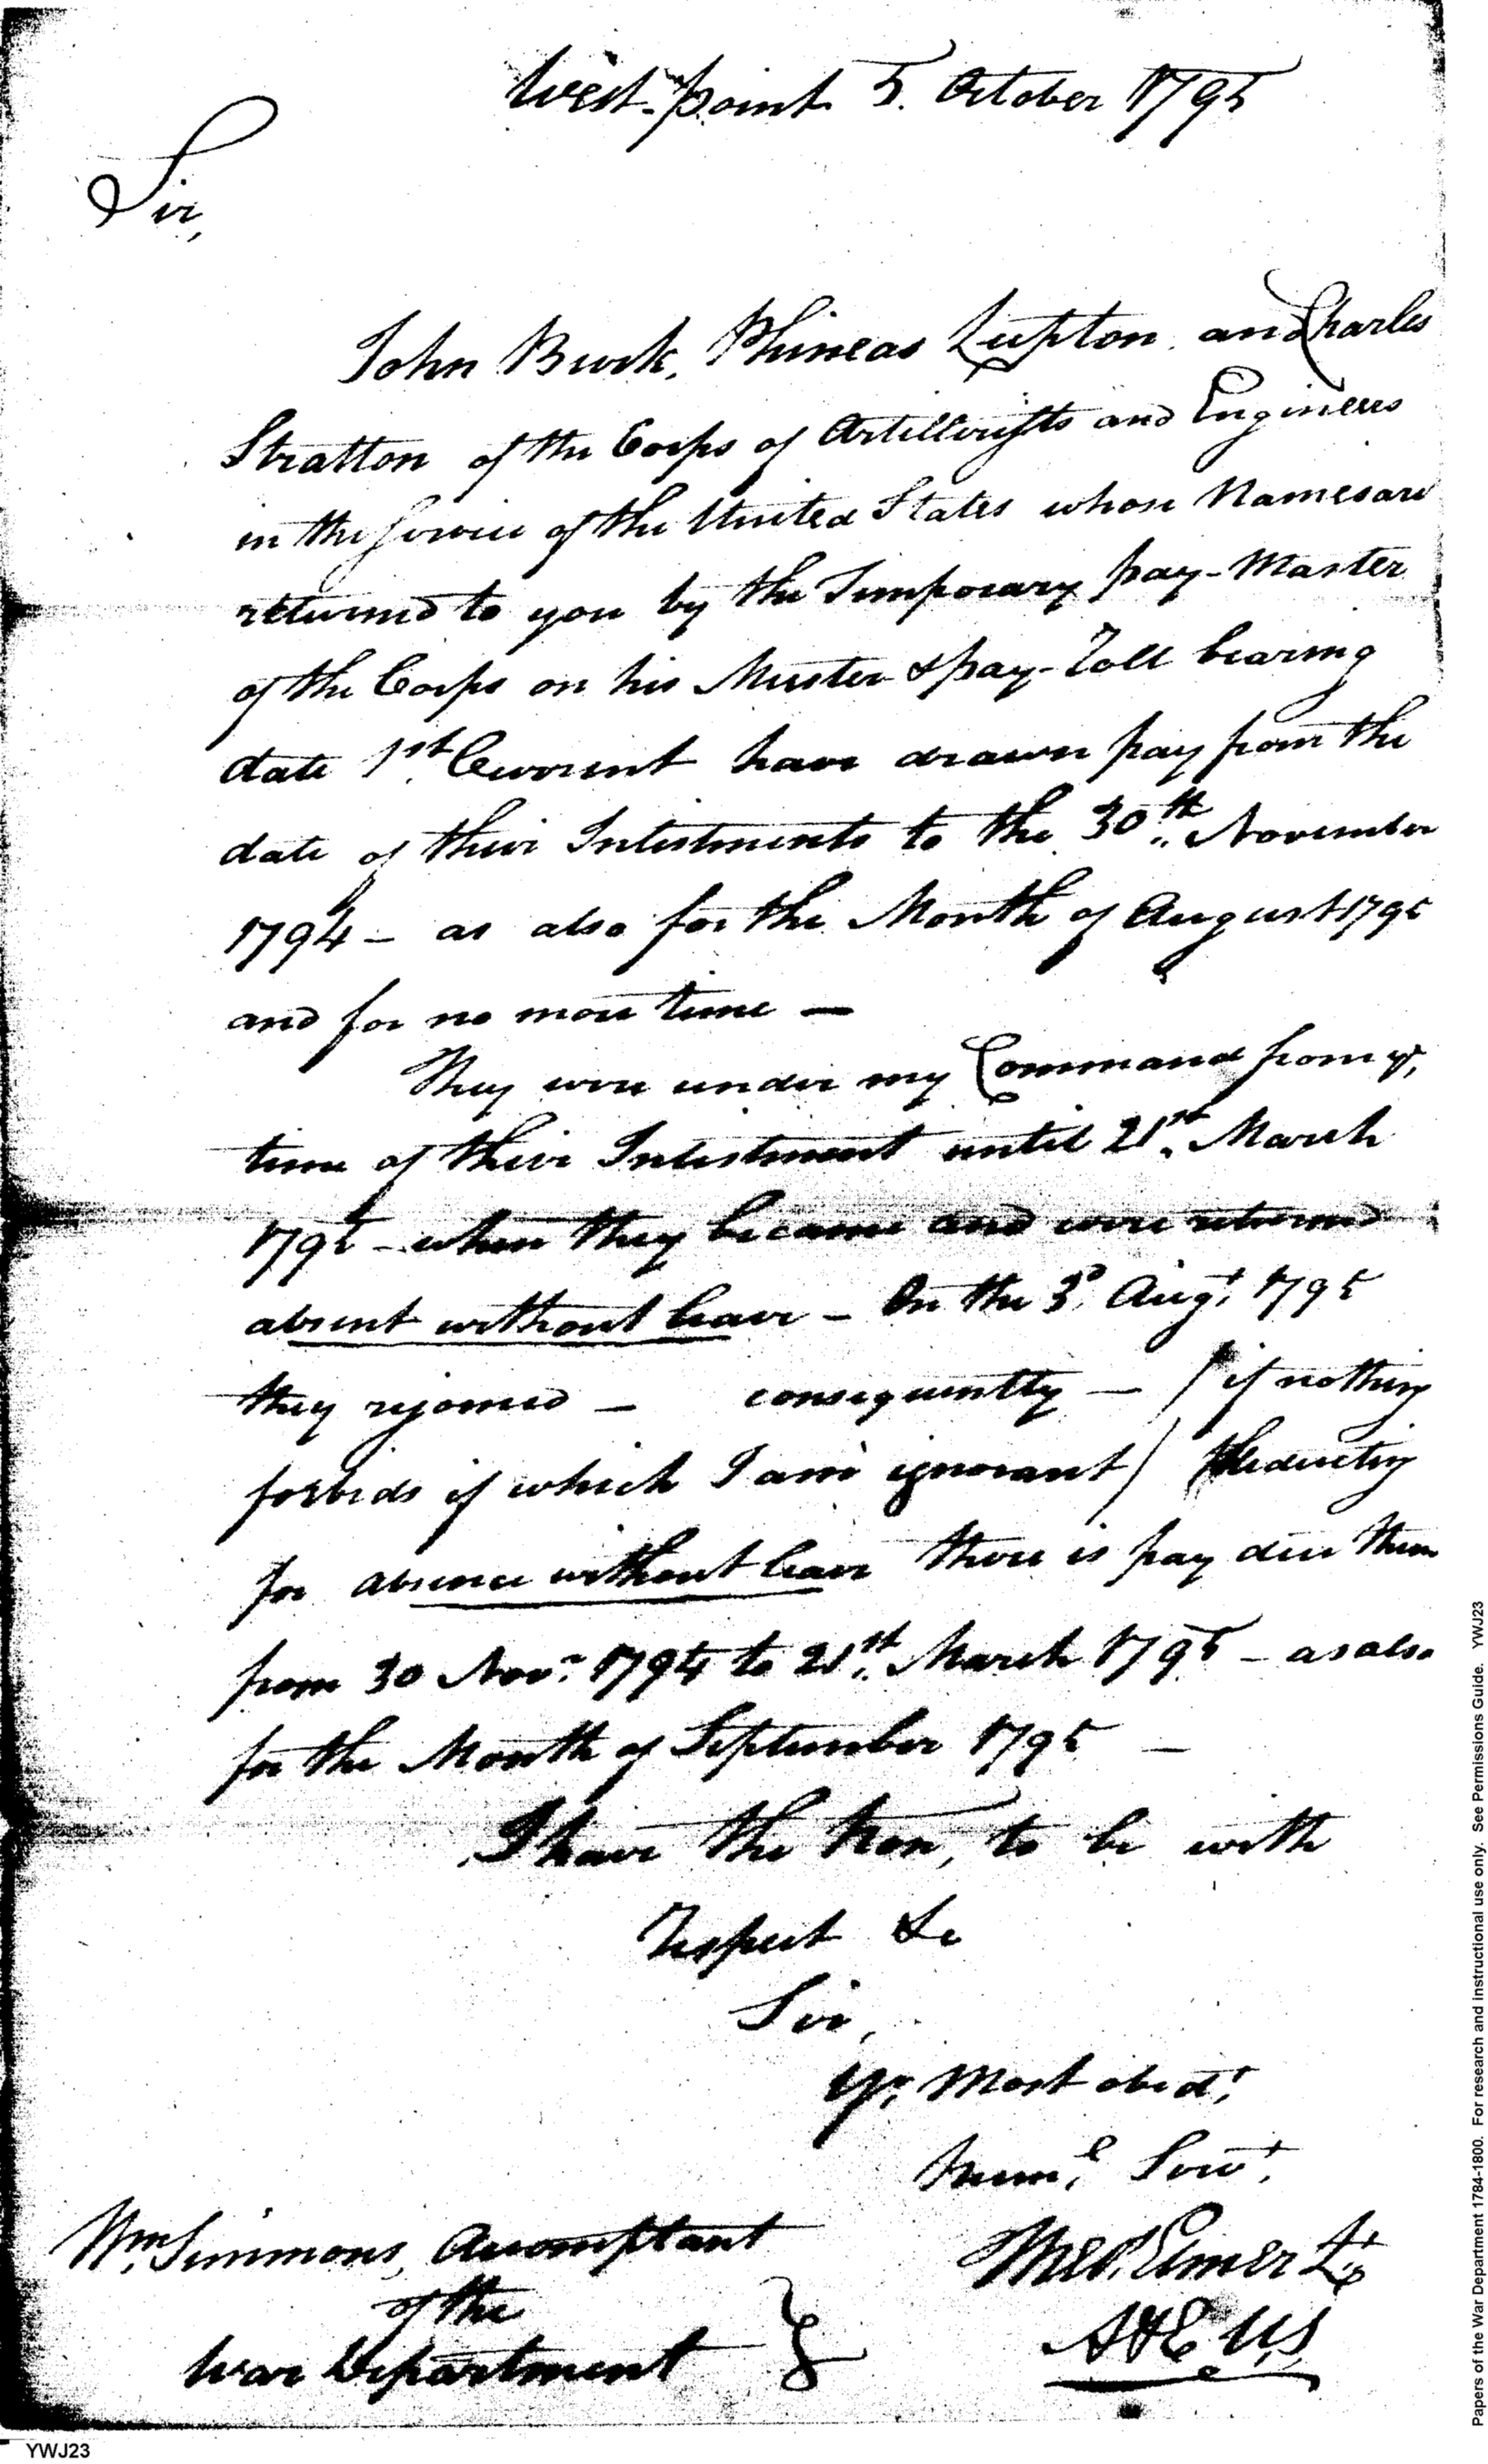 West-point 5. October 1795
Sir,
John Burk, Phineas Lupton, and Charles
Stratton of the Corps of Artillerists and Engineers
in the Service of the United States whose Names are
returned to you by the Temporary pay-Master
of the Corps on his Muster & pay-Roll bearing
date 1st. Current have drawn pay from the
date of their Inlistments to the 30th. November
1794 - as also for the Month of August 1795
and for no more time -
They were under my Command from ye,
time of their Inlistment until 21st. March
1795 - when they became and were returned
absent without leave - On the 3d. Augt. 1795
they rejoined - consequently - (if nothing
forbids of which I am ignorant) deducting
for absence without leave there is pay due them
from 30 Novr. 1794 to 21st. March 1795 - as also
for the Month of September 1795 -
I have the hon, to be with
Respect &c
Sir,
Yr, Most obedt,
huml, Servt,
Wm, Simmons, Accomptant
of the
War Department
Elmer Lt.
A&E U,S,
Papers of the War Department 1784-1800. For research and instructional use only. See Permissions Guide. YWJ23
YWJ23